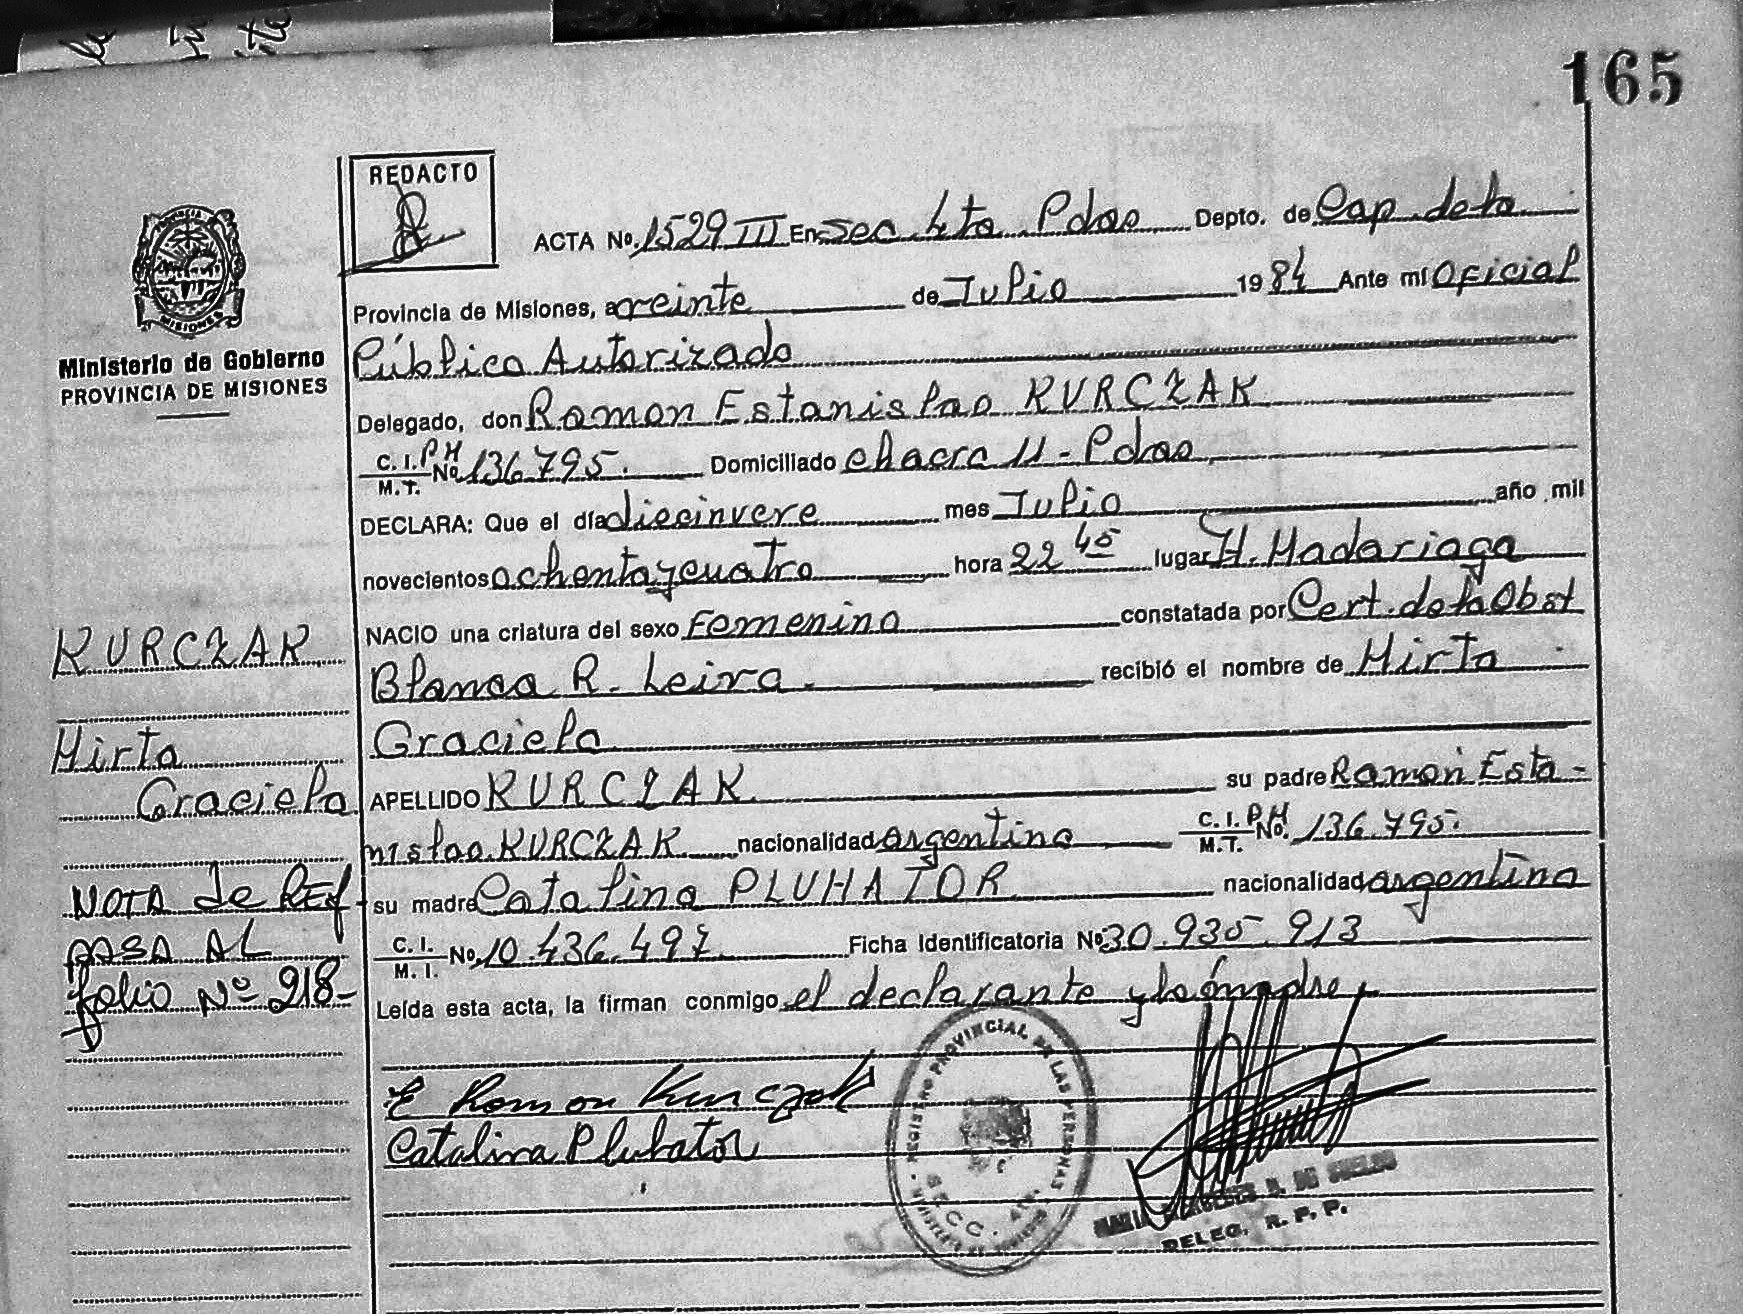 165
REDACTO
ACTA No. 1529 III En Sec 4ta Pdas Depto. de Cap de la
Provincia de Misiones, a veinte de Julio 1984 Ante mí Oficial
Público Autorizado
Delegado, don Ramon Estanislao KURCZAK
C. I. P H
M. T. No 136.795. Domiciliado chacra 11 - Pdas
DECLARA: Que el día diecinueve mes Julio año mil
novecientos ochenta y cuatro hora 22 45 lugar H. Madariaga
NACIO una criatura del sexo Femenino constatada por Cert. de la Obst
Blanca R. Leiva. recibió el nombre de Mirta
Graciela
APELLIDO KURCZAK su padre Ramon Esta-
nislao KURCZAK nacionalidad argentino C. I. P H
M. T. No. 136.795.
su madre Catalina PLUHATOR nacionalidad argentina
C. I.
M. I. No. 10.436.497 Ficha Identificatoria Nº 30.935.913
Leída esta acta, la firman conmigo el declarante y la madre
E Ramon Kurczak
Catalina Pluhator
REGISTRO PROVINCIAL DE LAS PERSONAS
SECC. 4ta.
DELEG. R. P. P.
PROVINCIA
MISIONES
Ministerio de Gobierno
PROVINCIA DE MISIONES
KURCZAK
Mirta
Graciela
NOTA de REF
PASA AL
folio Nº 218-